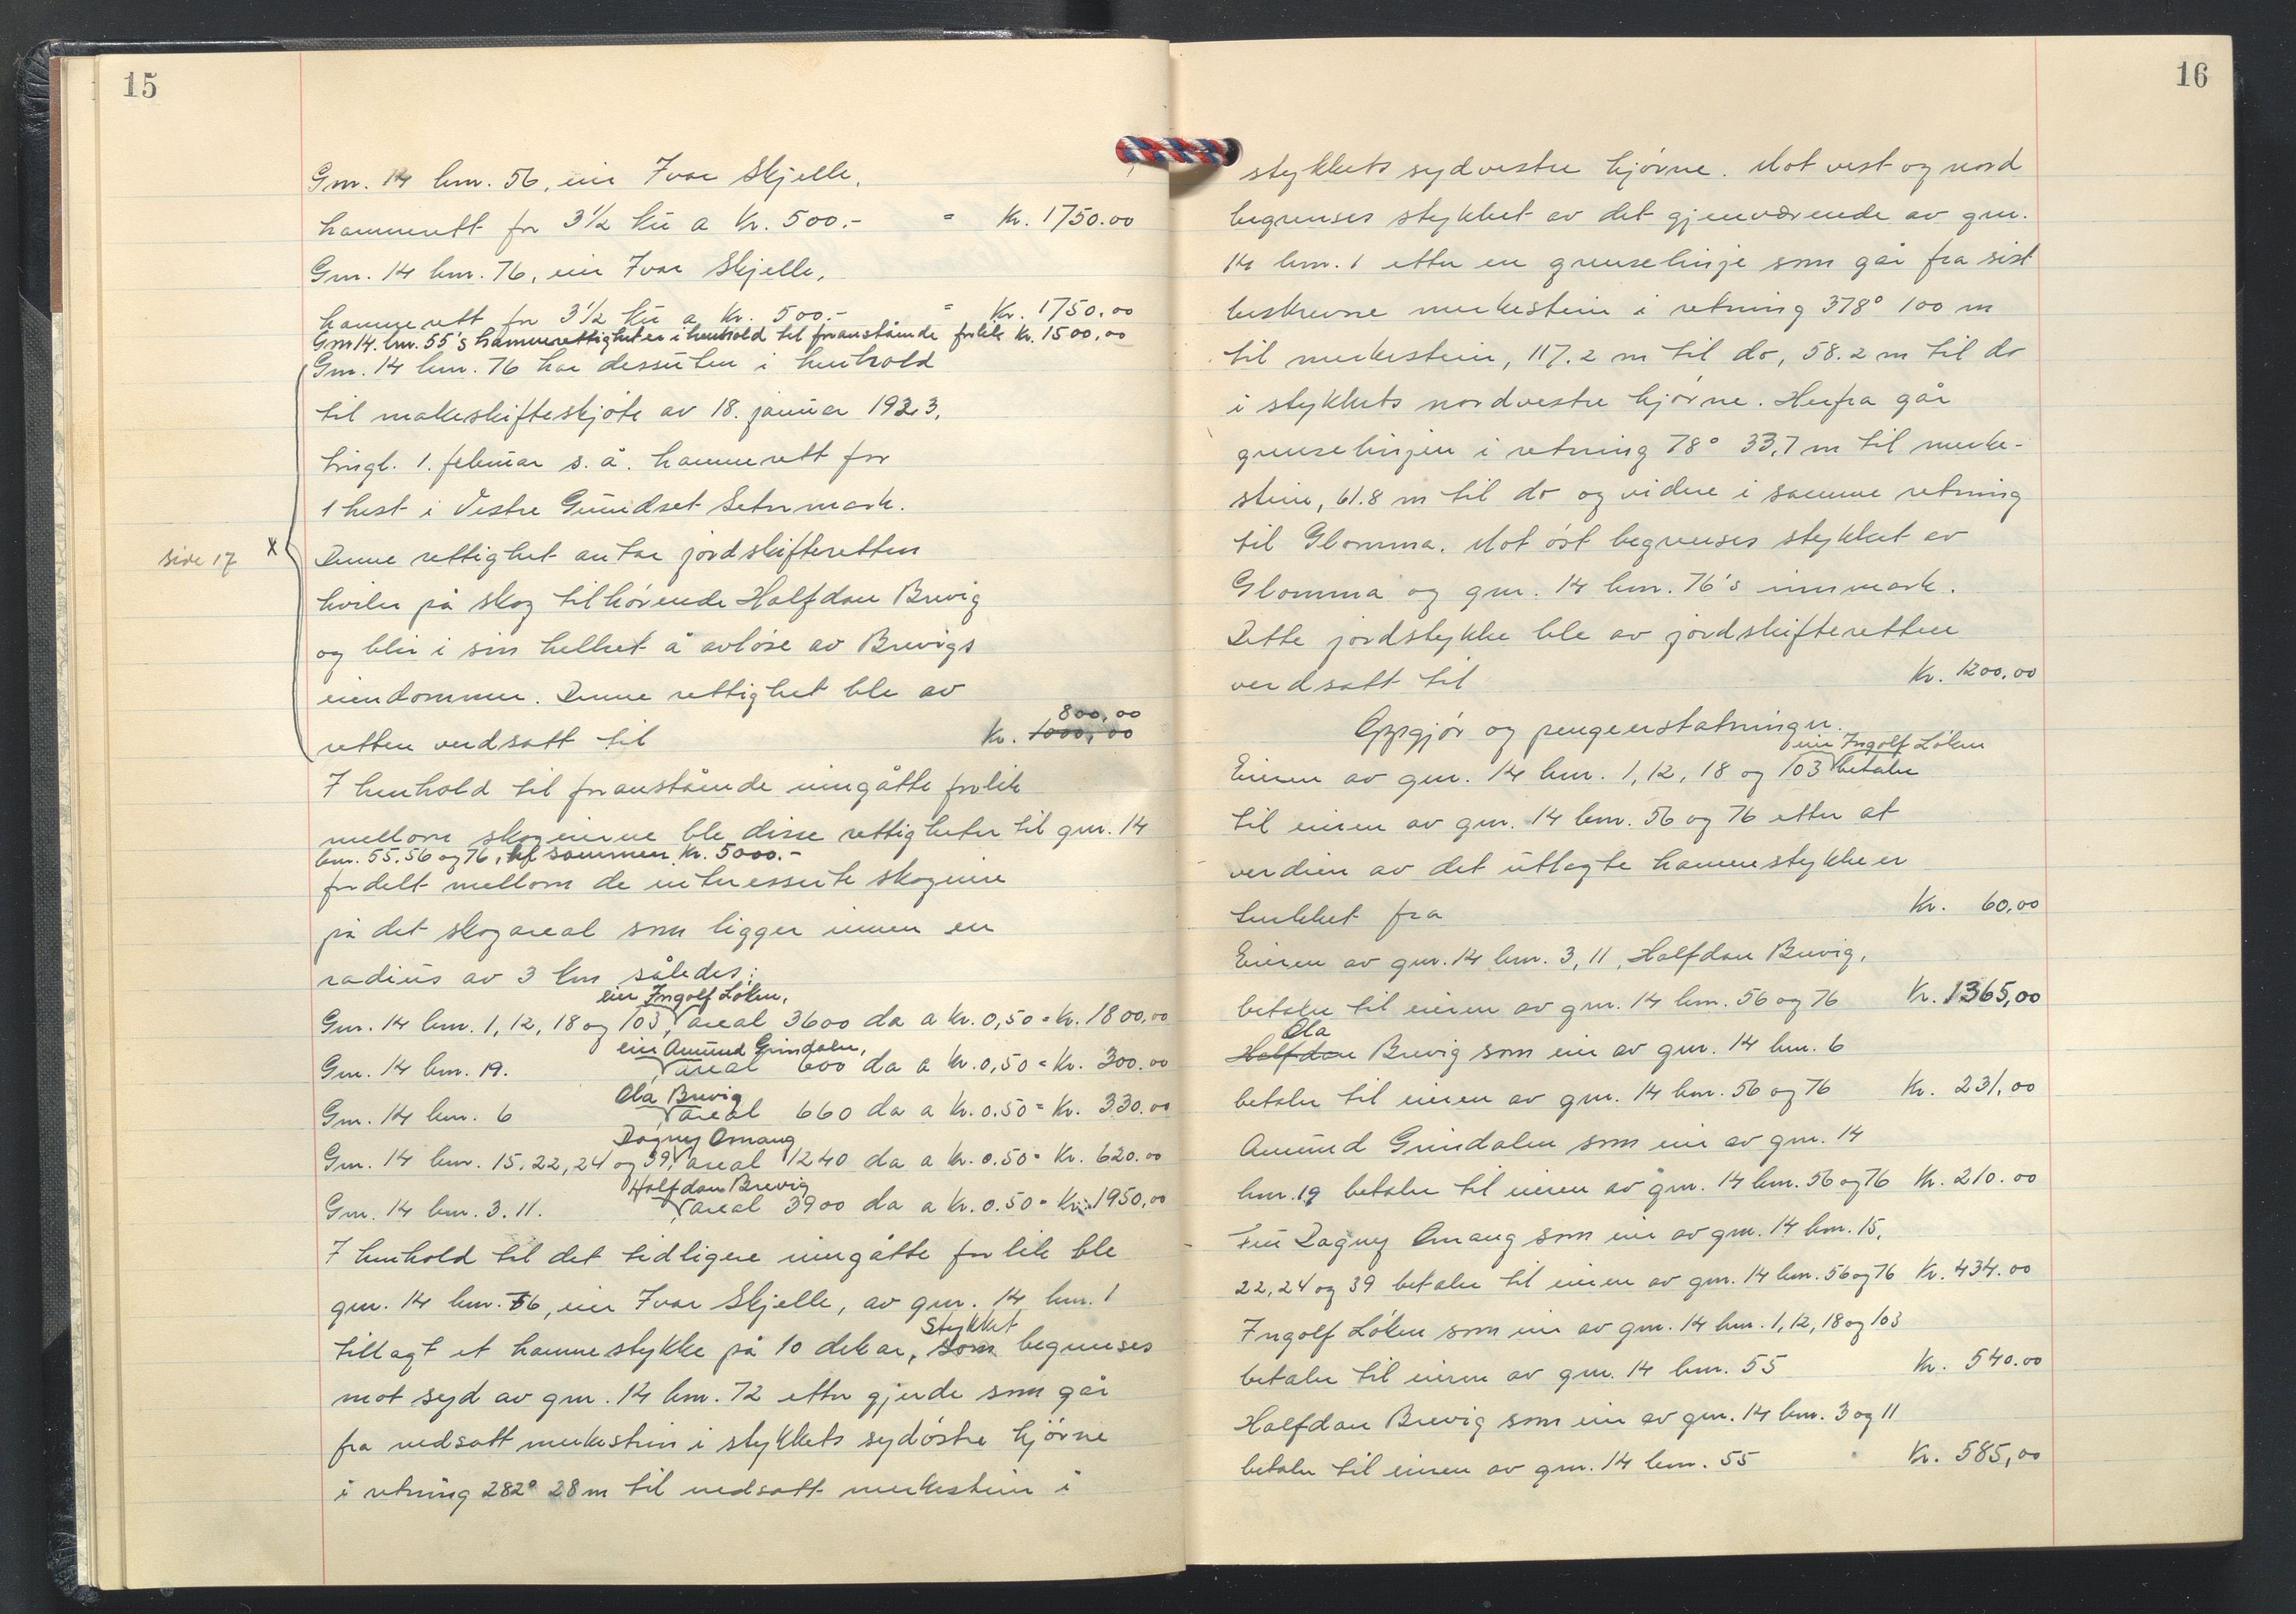 15
Gnr. 14 bnr. 56, eier Ivar Skjelle,
hamnerett for 3½ ku a Kr. 500.- = Kr. 1750.00
Gnr. 14 bnr. 76, eier Ivar Skjelle,
hamnerett for 3½ ku a Kr. 500.- = Kr. 1750,00
Gnr 14. bnr. 55's hamnerettigheter i henhold til foranstående forlik Kr. 1500,00
Gnr. 14 bnr. 76 har dessuten i henhold
til makeskifteskjøte av 18. januar 1923,
tingl. 1. februar s. å. hamnerett for
1 hest i Vestre Grundset Setermark.
side 17 x Denne rettighet antar jordskifteretten
hviler på skog tilhørende Halfdan Brevig
og blir i sin helhet å avløse av Brevigs
eiendommer. Denne rettighet ble av
800,00
retten verdsatt til Kr. 1000,00
I henhold til foranstående inngåtte forlik
mellom skogeierne ble disse rettigheter til gnr. 14
bnr. 55, 56 og 76, tilsammen Kr. 5000.-
fordelt mellom de interesserte skogeiere
på det skogareal som ligger innen en
radius av 3 km således:
eier Ingolf Løken,
Gnr. 14 bnr. 1, 12, 18 og 103, areal 3600 da a Kr. 0,50 = Kr. 1800,00
eier Amund Grindalen,
Gnr. 14 bnr. 19. areal 600 da a Kr. 0,50 = Kr. 300.00
Ola Brevig
Gnr. 14 bnr. 6 areal 660 da a Kr. 0.50 = Kr. 330.00
Dagny Omang
Gnr. 14 bnr. 15, 22, 24 og 39, areal 1240 da a Kr. 0.50 = Kr. 620.00
Halfdan Brevig
Gnr. 14 bnr. 3. 11. areal 3900 da a Kr. 0.50 = Kr. 1950,00
I henhold til det tidligere inngåtte forlik ble
gnr. 14 bnr. 56, eier Ivar Skjelle, av gnr. 14 bnr. 1
Stykket
tillagt et hamnestykke på 10 dekar, som begrenses
mot syd av gnr. 14 bnr. 72 etter gjerde som går
fra nedsatt merkestein i stykkets sydøstre hjørne
i retning 282° 28 m til nedsatt merkestein i
16
stykkets sydvestre hjørne. Mot vest og nord
begrenses stykket av det gjenværende av gnr.
14 bnr. 1 etter en grenselinje som går fra sist
beskrevne merkestein i retning 378° 100 m
til merkestein, 117.2 m til do, 58.2 m til do
i stykkets nordvestre hjørne. Herfra går
grenselinjen i retning 78° 33,7 m til merke-
stein, 61.8 m til do og videre i samme retning
til Glomma. Mot øst begrenses stykket av
Glomma og gnr. 14 bnr. 76's innmark.
Dette jordstykke ble av jordskifteretten
verdsatt til Kr. 1200,00
Oppgjør og pengeerstatninger.
eier Ingolf Løken
Eieren av gnr. 14 bnr. 1, 12, 18 og 103 betaler
til eieren av gnr. 14 bnr. 56 og 76 etter at
verdien av det utlagte hamnestykke er
trukket fra Kr. 60,00
Eieren av gnr. 14 bnr. 3, 11, Halfdan Brevig,
betaler til eieren av gnr. 14 bnr. 56 og 76 Kr. 1365,00
Ola
Halfdan Brevig som eier av gnr. 14 bnr. 6
betaler til eieren av gnr. 14 bnr. 56 og 76 Kr. 231,00
Amund Grindalen som eier av gnr. 14
bnr. 19 betaler til eieren av gnr. 14 bnr. 56 og 76 Kr. 210.00
Fru Dagny Omang som eier av gnr. 14 bnr. 15,
22, 24 og 39 betaler til eieren av gnr. 14 bnr. 56 og 76 Kr. 434.00
Ingolf Løken som eier av gnr. 14 bnr. 1, 12, 18 og 103
betaler til eieren av gnr. 14 bnr. 55 Kr. 540.00
Halfdan Brevig som eier av gnr. 14 bnr. 3 og 11
betaler til eieren av gnr. 14 bnr. 55 Kr. 585,00